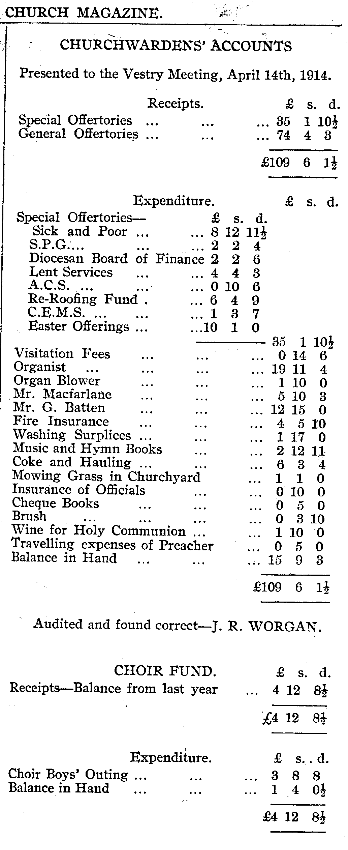 CHURCH MAGAZINE.
CHURCHWARDENS' ACCOUNTS
Presented to the Vestry Meeting, April 14th, 1914.
Receipts. £ s. d.
Special Offertories ... ... ... 35 1 10½
General Offertories ... ... ... 74 4 3
£109 6 1½
Expenditure. £ s. d.
Special Offertories— £ s. d.
Sick and Poor ... ... 8 12 11½
S.P.G.... ... ... 2 2 4
Diocesan Board of Finance 2 2 6
Lent Services ... ... 4 4 3
A.C.S. ... ... ... 0 10 6
Re-Roofing Fund . ... 6 4 9
C.E.M.S. ... ... ... 1 3 7
Easter Offerings ... ...10 1 0
35 1 10½
Visitation Fees ... ... ... 0 14 6
Organist ... ... ... ... 19 11 4
Organ Blower ... ... ... 1 10 0
Mr. Macfarlane ... ... ... 5 10 3
Mr. G. Batten ... ... ... 12 15 0
Fire Insurance ... ... ... 4 5 10
Washing Surplices ... ... ... 1 17 0
Music and Hymn Books ... ... 2 12 11
Coke and Hauling ... ... ... 6 3 4
Mowing Grass in Churchyard ... 1 1 0
Insurance of Officials ... ... 0 10 0
Cheque Books ... ... ... 0 5 0
Brush ... ... ... ... 0 3 10
Wine for Holy Communion ... ... 1 10 0
Travelling expenses of Preacher ... 0 5 0
Balance in Hand ... ... ... 15 9 3
£109 6 1½
Audited and found correct—J. R. WORGAN.
CHOIR FUND. £ s. d.
Receipts—Balance from last year ... 4 12 8½
£4 12 8½
Expenditure. £ s. d.
Choir Boys' Outing ... ... ... 3 8 8
Balance in Hand ... ... ... 1 4 0½
£4 12 8½